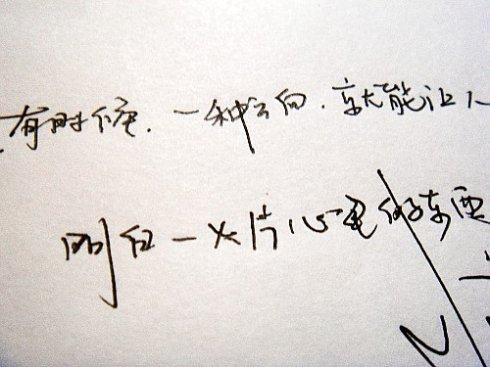 有时候，一种方向，就能让人
明白一片心里的东西